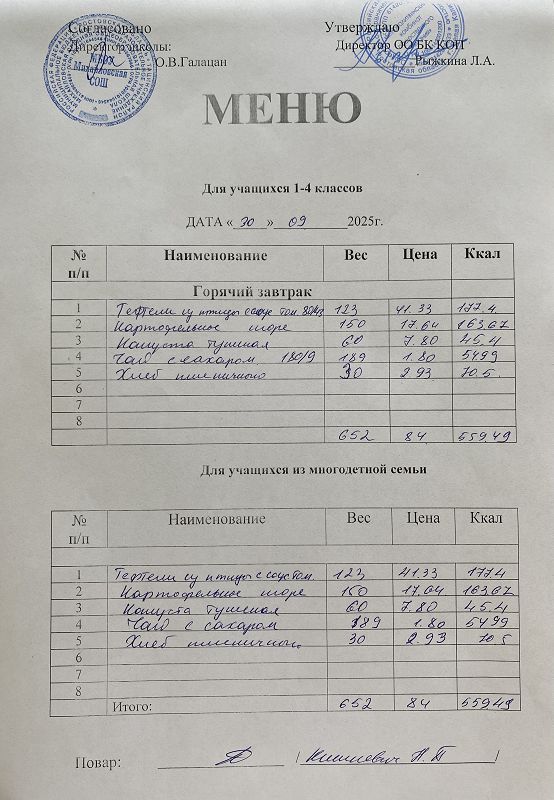 Согласовано Утверждаю
Директор школы: Директор ОО БК КОП
О.В.Галацан Рыжкина Л.А.
МБОУ
Михайловская
СОШ
МЕНЮ
Для учащихся 1-4 классов
ДАТА «30» 09 2025г.
№ п/п Наименование Вес Цена Ккал
Горячий завтрак
1 Тефтели из птицы с соус том. 123 41.33 177.4
2 Картофельное пюре 150 17.64 163,67
3 Капуста тушеная 60 7.80 45.4
4 Чай с сахаром 180/9 189 1.80 5499
5 Хлеб пшеничного 30 2.93 70.5
6
7
8
652 84 559.49
Для учащихся из многодетной семьи
№ п/п Наименование Вес Цена Ккал
1 Тефтели из птицы с соус том. 123 41.33 177.4
2 Картофельное пюре 150 17.64 163,67
3 Капуста тушеная 60 7.80 45.4
4 Чай с сахаром 189 1.80 5499
5 Хлеб пшеничного 30 2.93 70 5
6
7
8
Итого: 652 84 559.49
Повар: / Н.П /